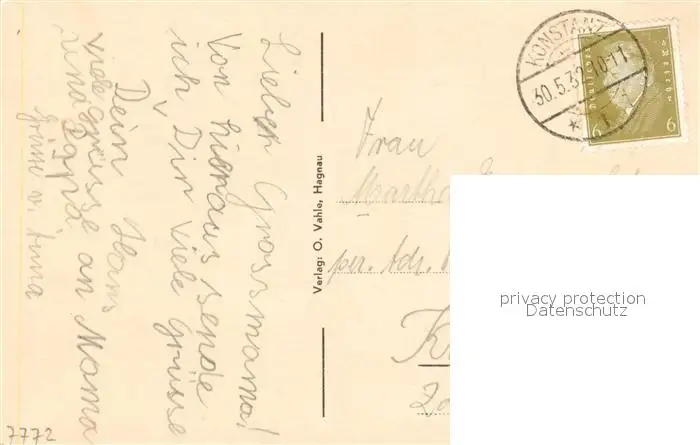 Liebe Grossmama!
Von hieraus sende
ich Dir viele Grüsse
Dein Hans
viele Grüsse an Mama
und Papa
Grüsse v. Anna
Verlag: O. Vahle, Hagnau
KONSTANZ
30.5.32
Deutsches Reich
6 6
Frau
per. Adr.
privacy protection
Datenschutz
7772